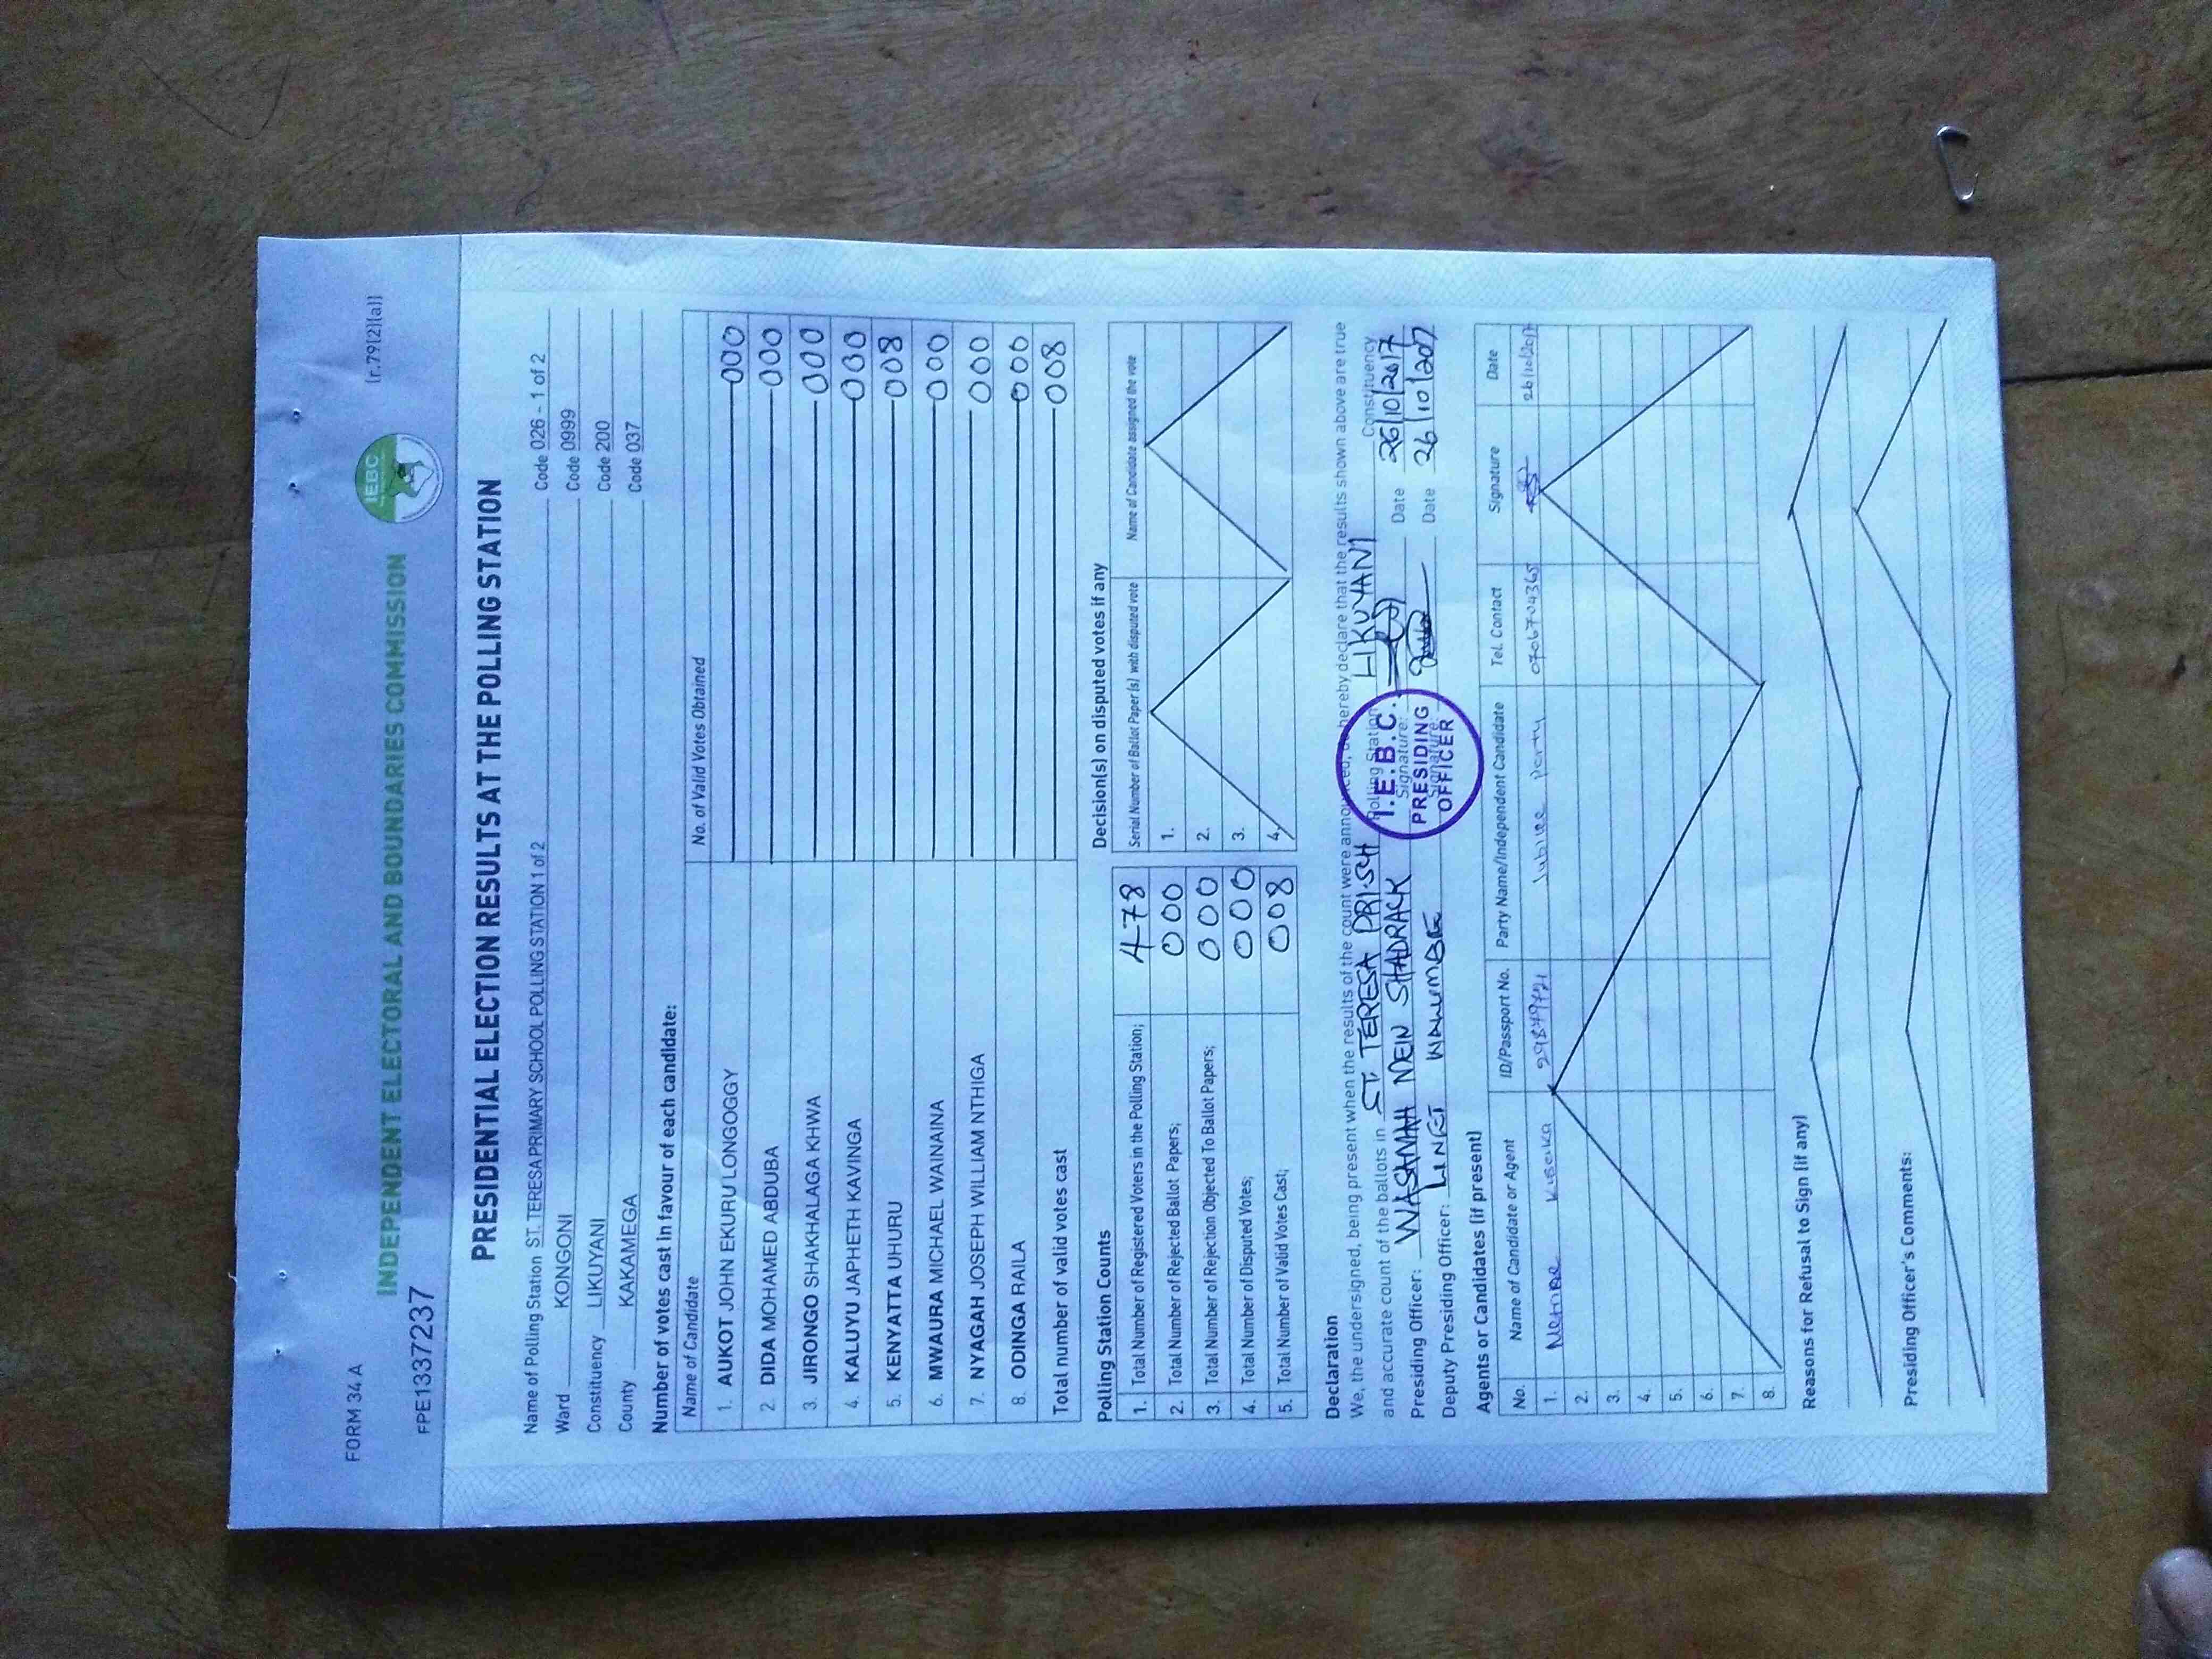 FORM 34 A
(r.79(2)(a))
INDEPENDENT ELECTORAL AND BOUNDARIES COMMISSION
IEBC
FPE1337237
PRESIDENTIAL ELECTION RESULTS AT THE POLLING STATION
Name of Polling Station ST. TERESA PRIMARY SCHOOL POLLING STATION 1 of 2 Code 026 - 1 of 2
Ward KONGONI Code 0999
Constituency LIKUYANI Code 200
County KAKAMEGA Code 037
Number of votes cast in favour of each candidate:
Name of Candidate No. of Valid Votes Obtained
1. AUKOT JOHN EKURU LONGOGGY 000
2. DIDA MOHAMED ABDUBA 000
3. JIRONGO SHAKHALAGA KHWA 000
4. KALUYU JAPHETH KAVINGA 000
5. KENYATTA UHURU 008
6. MWAURA MICHAEL WAINAINA 000
7. NYAGAH JOSEPH WILLIAM NTHIGA 000
8. ODINGA RAILA 000
Total number of valid votes cast 008
Polling Station Counts
1. Total Number of Registered Voters in the Polling Station; 478
2. Total Number of Rejected Ballot Papers; 000
3. Total Number of Rejection Objected To Ballot Papers; 000
4. Total Number of Disputed Votes; 000
5. Total Number of Valid Votes Cast; 008
Decision(s) on disputed votes if any
Serial Number of Ballot Paper(s) with disputed vote Name of Candidate assigned the vote
1.
2.
3.
4.
Declaration
We, the undersigned, being present when the results of the count were announced, do hereby declare that the results shown above are true
and accurate count of the ballots in ST. TERESA PRI SCH Polling Station LIKUYANI Constituency
Presiding Officer: WASAMAH NDEIN SHADRACK Signature: Date 26/10/2017
Deputy Presiding Officer: LINET WAWUMBE Signature: Date 26/10/2017
I.E.B.C.
PRESIDING
OFFICER
Agents or Candidates (if present)
No. Name of Candidate or Agent ID/Passport No. Party Name/Independent Candidate Tel. Contact Signature Date
1. Jubilee party 0706704365 26/10/2017
2.
3.
4.
5.
6.
7.
8.
Reasons for Refusal to Sign (if any)
Presiding Officer's Comments: